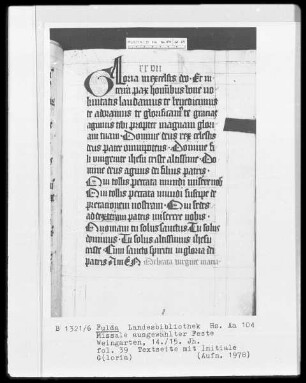 Gloria in excelsis deo. Et in
terra pax hominibus bone vo
luntatis laudamus te benedicimus
te adoramus te glorificam' te gracias
agimus tibi propter magnam glori
am tuam. Domine deus rex celestis
deus pater omnipotens. Domine fi
li unigenite ihesu criste altissime. Do
mine deus agnus dei filius patris.
Qui tollis peccata mundi miserere nob
Qui tollis peccata mundi suscipe de
precationem nostram. Qui sedes
ad dexteram patris miserere nobis.
Quoniam tu solus sanctus. Tu solus
dominus. Tu solus altissimus ihesu
criste. Cum sancto spiritu in gloria dei
patris. AmEN
B 1321/6 Fulda Landesbibliothek Hs. Aa 104
Missale ausgewählter Feste
Weingarten, 14./15. Jh.
fol. 39 Textseite mit Initiale
G(loria) (Aufn. 1978)